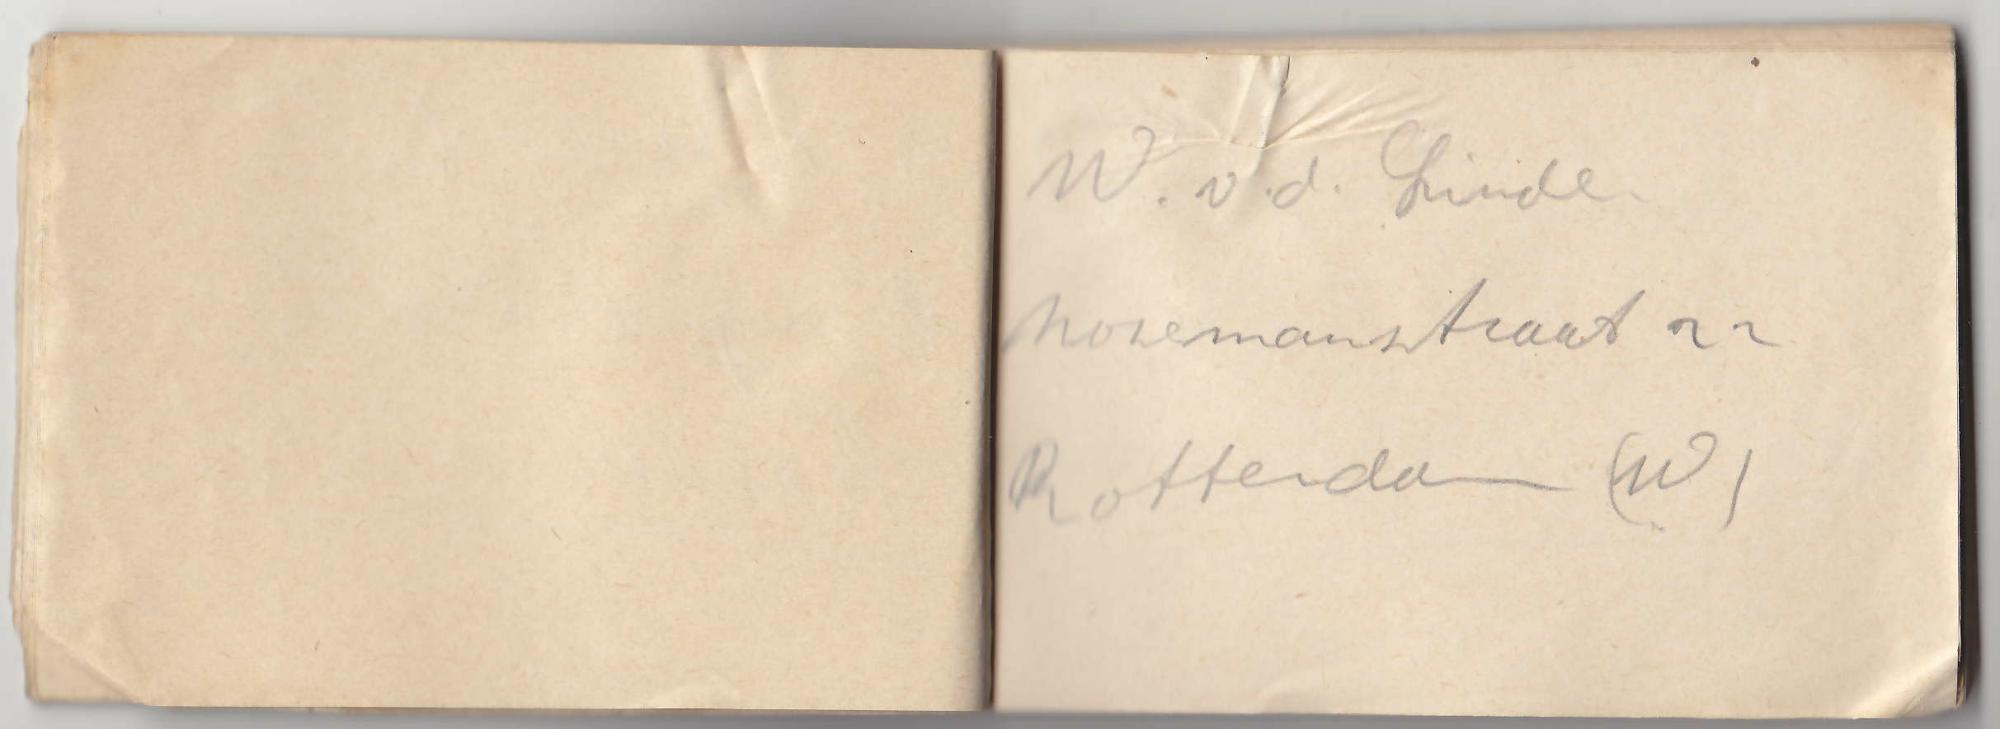 W. v.d. Linde.
Nozemanstraat 22
Rotterdam (W)